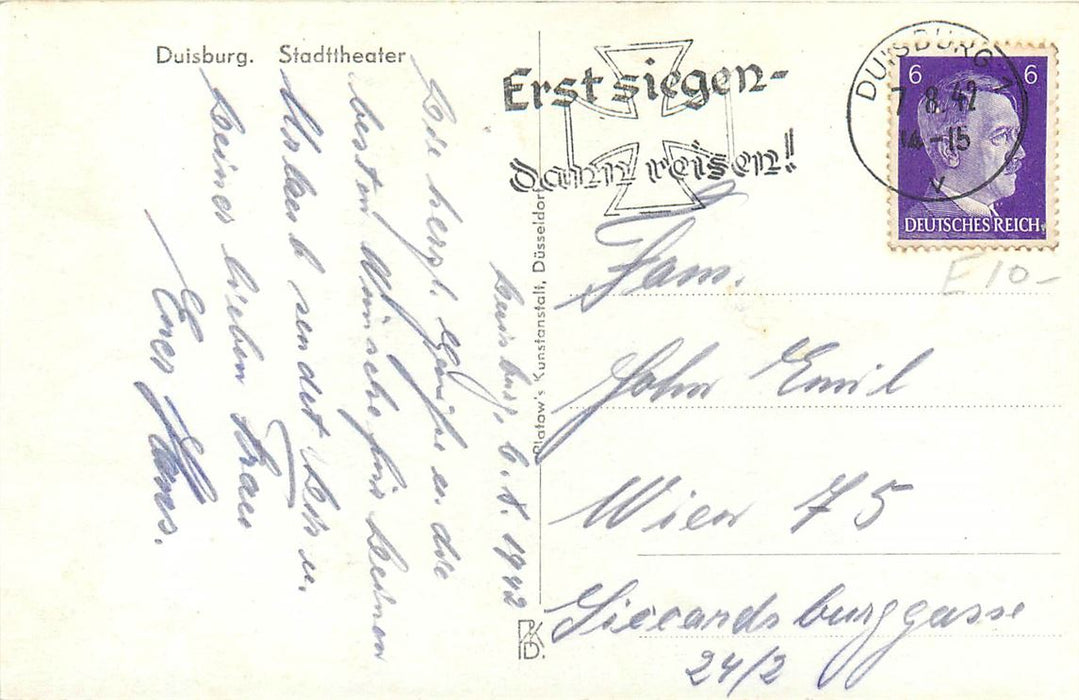 Duisburg. Stadttheater
Erst siegen-
dann reisen!
DUISBURG 1
7.8.42
14-15
v
6 6
DEUTSCHES REICH
E 10-
Platow's Kunstanstalt, Düsseldorf
PKD.
Duisburg, 6. 8. 1942
Die herzl. Grüße u. die
besten Wünsche für Deinen
Urlaub sendet Dir u.
Deiner lieben Frau
Euer Hans.
Fam.
John Emil
Wien 75
Siccardsburggasse
24/2